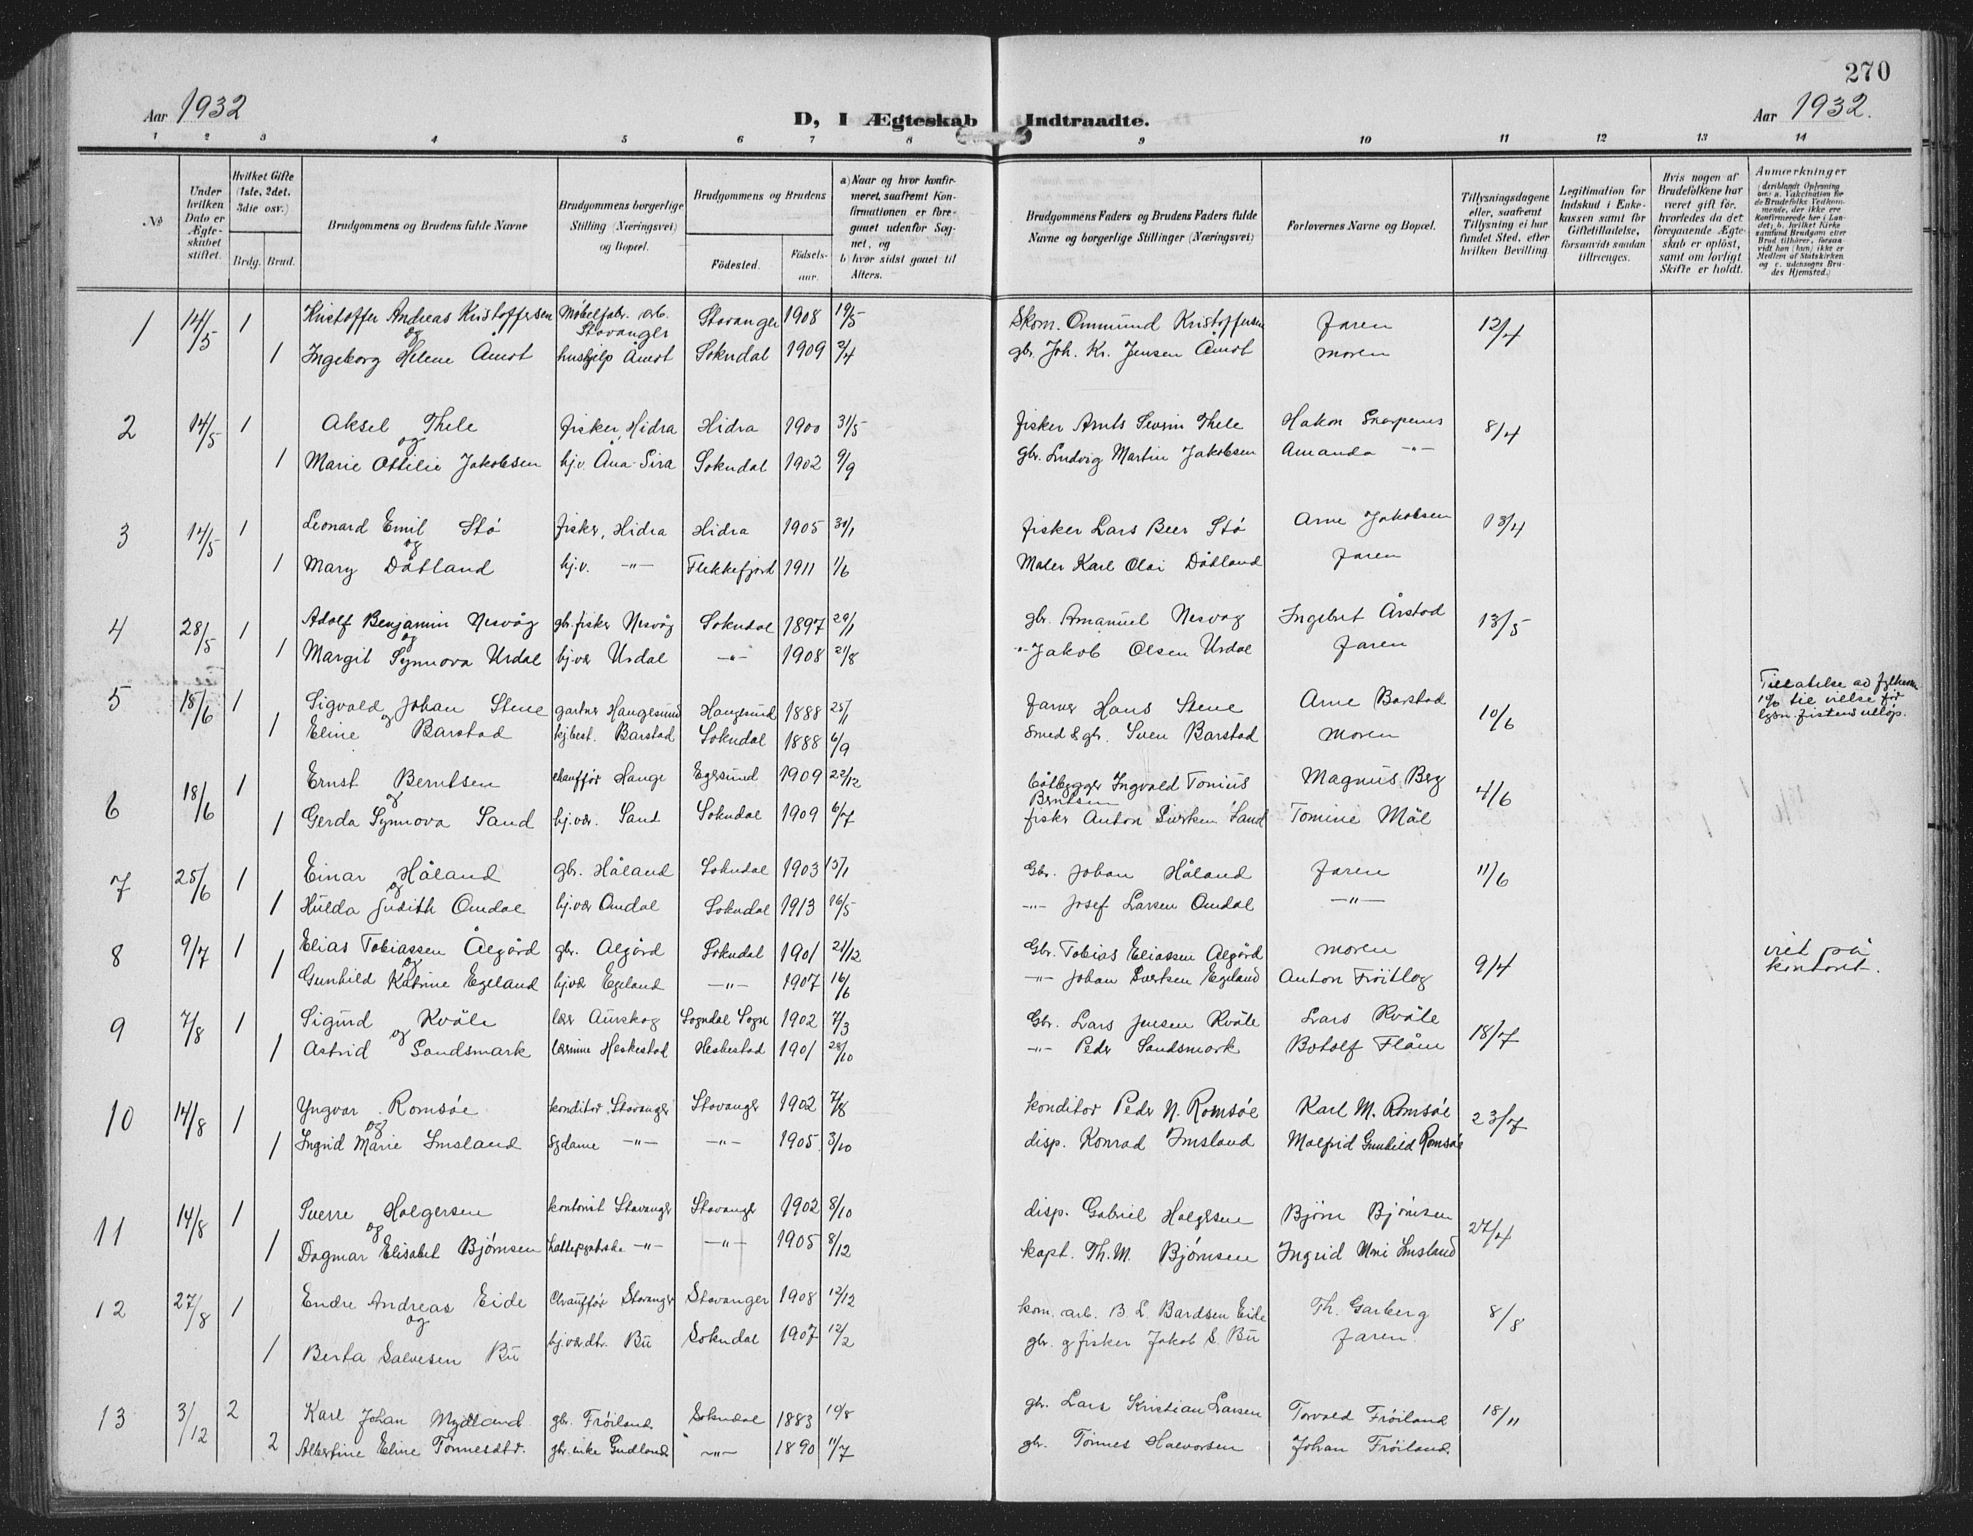 270
Aar 1932 D, I Ægteskab Indtraadte. Aar 1932.
1 2 3 4 5 6 7 8 9 10 11 12 13 14
№
Under hvilken Dato er Ægteskabet stiftet.
Hvilket Gifte (1ste, 2det, 3die osv.)
Brdg. Brud.
Brudgommens og Brudens fulde Navne
Brudgommens borgerlige Stilling (Næringsvei) og Bopæl.
Brudgommens og Brudens
Fødested. Fødselsaar.
a) Naar og hvor konfirmeret, saafremt Konfirmationen er foregaaet udenfor Sognet, og
b) hvor sidst gaaet til Alters.
Brudgommens Faders og Brudens Faders fulde Navne og borgerlige Stillinger (Næringsvei)
Forlovernes Navne og Bopæl.
Tillysningsdagene eller, saafremt Tillysning ei har fundet Sted, efter hvilken Bevilling.
Legitimation for Indskud i Enkekassen samt for Giftetilladelse, forsaavidt saadan tiltrænges.
Hvis nogen af Brudefolkene har været gift før, hvorledes da det foregaaende Ægteskab er opløst, samt om lovligt Skifte er holdt.
Anmærkninger
(deriblandt Oplysning om: a. Vakcination for de Brudefolks Vedkommende, der ikke ere Konfirmerede her i Landet; b. hvilket Kirkesamfund Brudgom eller Brud tilhører, forsaavidt han (hun) ikke er Medlem af Statskirken og c. udensogns Brudes Hjemsted.)
1 14/5 1 Kristoffer Andreas Kristoffersen Møbelfabr. arb. Stavanger Stavanger 1908 19/5 Skom. Ommund Kristoffersen faren 12/4
og
1 Ingeborg Helene Åmot hushjelp Åmot Sokndal 1909 2/4 gbr. Joh. Kr. Jensen Åmot moren
2 14/5 1 Aksel Thele fisker, Hidra Hidra 1900 31/5 fisker Arnts Severin Thele Hakon 8/4
og
1 Marie Ottilie Jakobsen hj.v. Åna-Sira Sokndal 1902 9/9 gbr. Ludvig Martin Jakobsen Amanda -"-
3 14/5 1 Leonard Emil Stø fisker, Hidra Hidra 1905 fisker Lars Beer Stø Arne Jakobsen 13/4
og
1 Mary Dåtland hj.v. -"- Flekkefjord 1911 1/6 Maler Karl Olai Dåtland faren
4 28/5 1 Adolf Benjamin Nesvåg gbr. fisker Nesvåg Sokndal 1897 29/1 gbr. Amanuel Nesvag Ingebret Årstad 13/5
og
1 Margit Synnova Urdal hj.vær Urdal -"- 1908 21/8 -"- Jakob Olsen Urdal faren
5 18/6 1 Sigvald Johan Stene gartner Haugesund Haugesund 1888 25/1 farver Hans Stene Arne Barstad 10/6 Tillatelse av fylkesm. til vielse før lysn. fristens utløp.
og
1 Eline Barstad hj.best. Barstad Sokndal 1888 6/9 Smed & gbr. Sven Barstad moren
6 18/6 1 Ernst Berntsen chauffør Hauge Egersund 1909 22/12 båtbygger Ingvald Tonius Berntsen Magnus Berg 4/6
og
1 Gerda Synnova Sand hj.vær. Sand Sokndal 1909 6/7 fisker Anton Sivertsen Sand Tomine Mål
7 25/6 1 Einar Håland gbr. Håland Sokndal 1903 15/1 Gbr. Johan Håland faren 11/6
og
1 Hulda Judith Omdal hj.vær Omdal Sokndal 1913 16/5 -"- Josef Larsen Omdal -"-
8 9/7 1 Elias Tobiassen Ålgård gbr. Algård Sokndal 1901 21/12 Gbr. Tobias Eliassen Algård moren 9/4 viet på kontoret.
og
1 Gunhild Katrine Egeland hj.vær Egeland -"- 1907 16/6 -"- Johan Sivertsen Egeland Anton Frøitlog
9 7/8 1 Sigurd Kvåle lær Aurskog Sogndal Sogn 1902 7/3 Gbr. Lars Jensen Kvåle Lars Kvåle 18/7
og
1 Astrid Sandsmark lærinne Heskestad Heskestad 1901 28/10 -"- Peder Sandsmark Botolf Flåm
10 14/8 1 Yngvar Romsøe konditor Stavanger Stavanger 1902 7/8 konditor Peder N. Romsøe Karl M. Romsøe 23/7
og
1 Ingrid Marie Imsland sydame -"- -"- 1905 3/10 disp. Konrad Imsland Malfrid Gunhild Romsøe
11 14/8 1 Sverre Holgersen kontorist Stavanger Stavanger 1902 8/10 disp. Gabriel Holgersen Bjørn Bjørnsen 27/4
og
1 Dagmar Elisabet Bjørnsen -"- -"- 1905 8/12 kapt. Th. M. Bjørnsen Ingrid Mari Imsland
12 27/8 1 Endre Andreas Eide Chauffør Stavanger Stavanger 1908 12/12 kom. arb. B. L. Bardsen Eide Th. Garberg 8/8
og
1 Berta Salvesen Bu hj.vær. dtr. Bu Sokndal 1907 12/2 gbr. og fisker Jakob S. Bu faren
13 3/12 2 Karl Johan Mydland gbr. Frøiland Sokndal 1883 19/8 gbr. Lars Kristian Larsen Torvald Frøiland 18/11
2 Albertine Eline Tønnesdtr. gbr. enke Gudland -"- 1890 11/7 gbr. Tønnes Halvorsen Johan Frøiland.